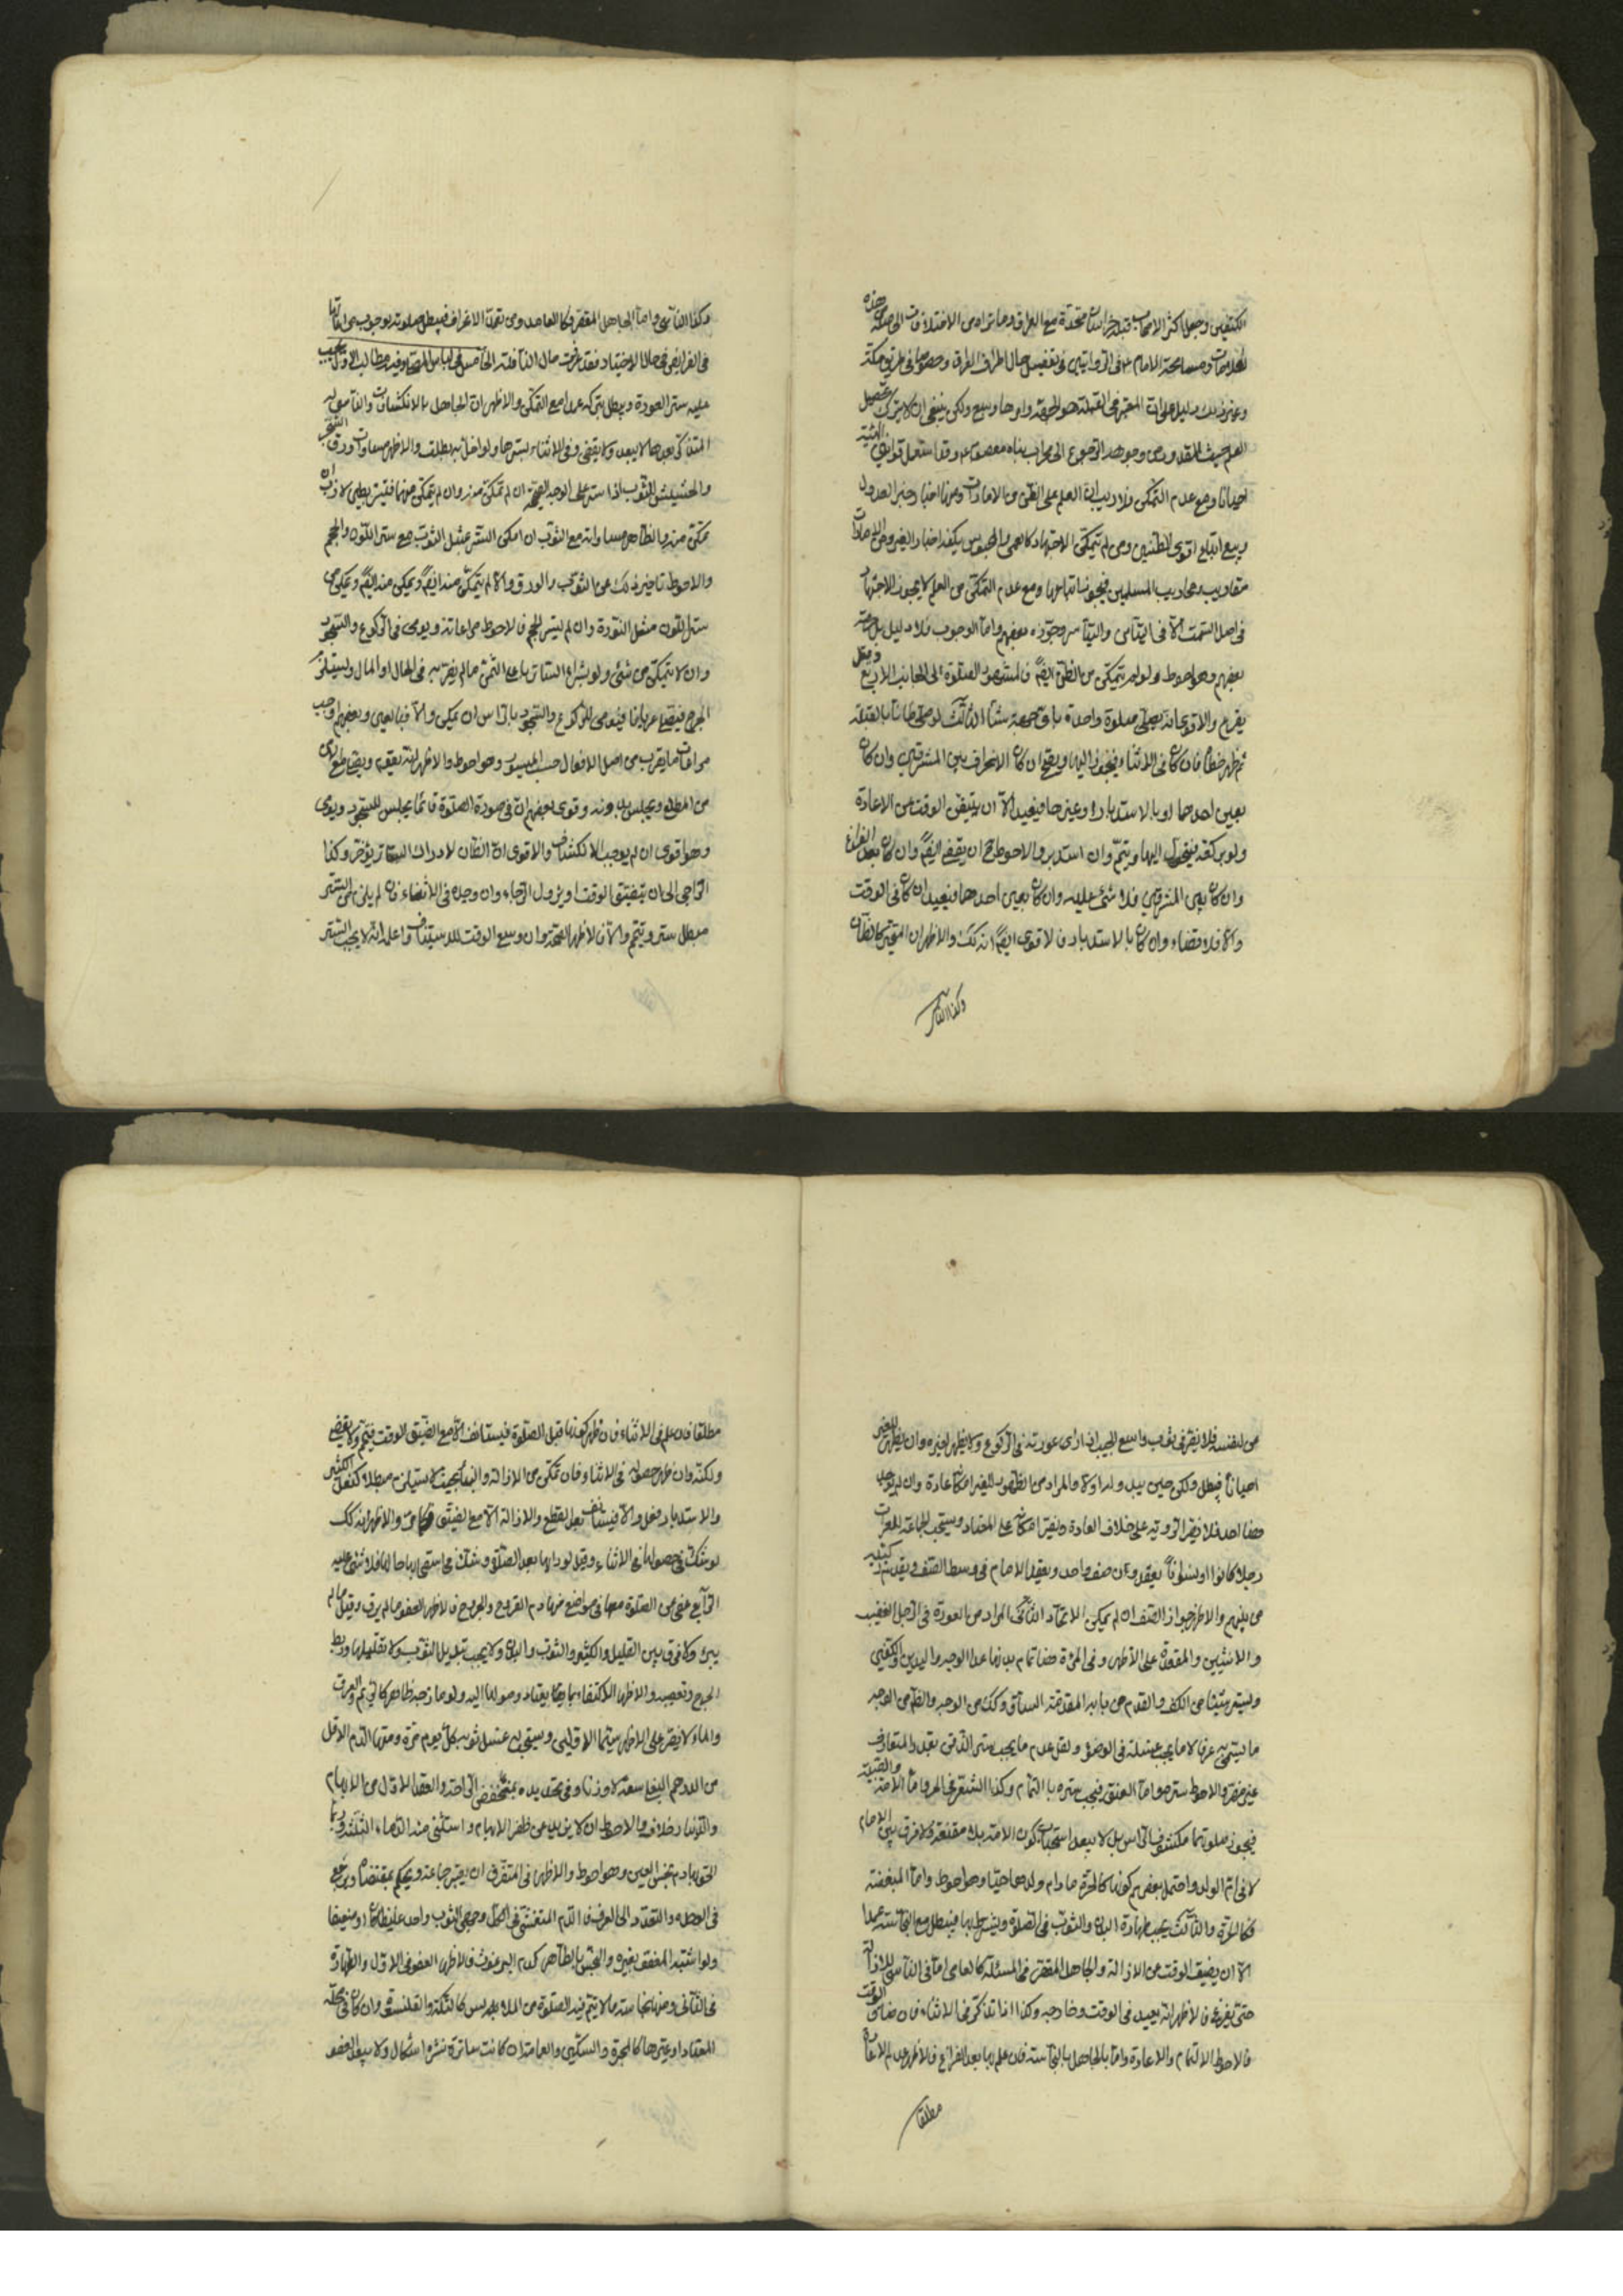 الكتفين وجعل اكثر الاصحاب قبلة خراسان متحدة مع العراق وما تراه من الاختلاف في هذه
العلامات ومسامحة الامام ع في الروايتين في تفصيل حال اطراف العراق وخصوصا في طريق مكة
وغير ذلك دليل على ان المعتبر في القبلة هو الجهة وامرها وسيع ولكن ينبغي ان لا يترك تحصيل
العلم حيث المقدور ومن وجوهه الرجوع الى محراب بناه معصوم ع وقد استعمل قوانين الهيئة
احيانا ومع عدم التمكن فلا ريب ان العلم على الظن من الامارات ومنها اخبار وخبر العدول
ويتبع اقوى الظنين ومن لم يتمكن الاجتهاد كالاعمى والمحبوس يكفيه اخبار الغير ومن الامارات
مقاديب محاريب المسلمين فيجوز اتباعها ومع عدم التمكن من العلم لا يجوز الاجتهاد
في اصل السمت الا في التيامن والتياسر وجوزه بعضهم واما الوجوب فلا دليل بل حرمه
بعضهم وهو احوط ولو لم يتمكن من الظن ايضا فالمشهور الصلوة الى الجوانب الاربع وقيل
يقرع والاقوى انه يصلي صلوة واحدة باي جهة شاء الثالث لو صلى ظانا بالقبلة
ثم ظهر خطأه فان كان في الاثناء فينحرف اليها ويصح ان كان الانحراف بين المشرقين وان كان
بعين احدهما او بالاستدبار او غيرها فيعيد الا ان يتيقن الوقت من الاعادة
ولو بركعة فينحرف اليها ويتم وان استدبر والاحوط ح ان يقضي ايضا وان كان بعد الفراغ
وان كان بين المشرقين فلا شئ عليه وان كان بعين احدهما فيعيد ان كان في الوقت
والا فلا قضاء وان كان بالاستدبار فالاقوى ايضا انه كك والاظهر ان المتحير كالظان
وكذا الناسي
وكذا الناسي واما الجاهل المقصر فكالعامد ومن تعمد الانحراف فيبطل صلوته بوجوب مراعاتها
في الفرائض في حال الاختيار فقد عرفت حال النافلة الخامس في لباس المصلي وفيه مطالب الاول يجب
عليه ستر العورة ويبطل بتركه عمدا مع التمكن والاظهر ان الجاهل بالانكشاف والناسي له
المتذكر بعدها لا يعيد ولا يقضي وفي الاثناء يسترها ولو اخل به بطلت والاظهر مساوات ورق الشجر
والحشيش للثوب اذا ستر على الوجه الصحيح ان لم يتمكن منه وان لم يتمكن منهما فيستر بطين لازب ان
تمكن منه والظاهر مساواته مع الثوب ان امكن الستر مثل الثوب مع ستر اللون والحجم
والاحوط تاخير ذلك عن الثوب والورق والا لم يتمكن منه ايضا ويمكن منه ايضا ويمكن من
ستر اللون مثل النورة وان لم يستر الحجم فالاحوط مراعاته ويومي في الركوع والسجود
وان لا يتمكن من شئ ولو بشراء الساتر باعلى الثمن ما لم يضر به في الحال او المال ويستلزم
الحرج فيصلي عريانا فيومي للركوع والسجود بالراس ان يمكن والا فبالعين وبعضهم اوجب
مراعات ما يقرب من اصل الافعال حسب الميسور وهو احوط والاظهر انه يقوم ويصلي مع امن
من المطلع ويجلس بدونه وقوى بعضهم ان في صورة الصلوة قائما يجلس للسجود ويومي
وهو اقوى ان لم يوجب الانكشاف والاقوى ان الظان لادراك الساتر يؤخر وكذا
الراجي الى ان يتضيق الوقت او يزول الرجاء وان وجده في الاثناء فان لم يلزم من الستر
مبطل ستر ويتم والا فالاظهر الصحة وان وسع الوقت للاستيناف واعلم انه لا يجب الستر
من لنفسه فلا يضر في ثوب واسع الجيب اذا راى عورته في الركوع ولا يظهر لغيره وان يظهر للغير
احيانا فيبطل ولكن حين يبدو له اولا والمراد من الظهور للغير امكانه عادة وان لم يوجد
هنا احد فلا يضر الرؤية على خلاف العادة وبغير امكانه على المعتاد ويستحب الجماعة للعراة
رجلا كانوا او نسوانا يقعدون صف واحد ويقعد الامام في وسط الصف ويقدم ركبتيه
من بينهم والاظهر جواز الصف ان لم يمكن الاتحاد الثاني المراد من العورة في الرجل القضيب
والانثيين والمقعدة على الاظهر وفي المرئة هنا تمام بدنها عدا الوجه واليدين والكفين
وليستر شيئا من الكف والقدم من باب المقدمة الساق وكك من الوجه والقدم من الوجه
ما يستر به عرفا لا ما يجب غسله في الوضوء ونقل عدم ما يجب ستر الذقن بقدر المتعارف
غير مضر والاحوط ستر هو اما العنق فيجب ستره بالتمام وكذا الشعر في الحرة واما الامة والصبية
فيجوز صلوتهما مكشوفة الراس بل لا يبعد استحباب كون الامة بلا مقنعة ولا فرق بين الاماء
لا في ام الولد واحتمل بعضهم كونها كالحرة ما دام ولدها حيا وهو احوط واما المبعضة
فكالحرة والثالث يجب طهارة البدن والثوب في الصلوة ويشترط بها فيبطل مع النجاسة عمدا
الا ان يضيق الوقت عن الازالة والجاهل المقصر في المسئلة كالعامد اما في الناسي للازالة
حتى يفرغ فالاظهر انه يعيد في الوقت وخارجه وكذا اذا تذكر في الاثناء فان ضاق الوقت
فالاحوط الاتمام والاعادة واما بالجاهل بالنجاسة فان علم بها بعد الفراغ فالاظهر عدم الاعادة
مطلقا
مطلقا فان علم في الاثناء فان ظهر كونها قبل الصلوة فيستانف الا مع الضيق الوقت فيتم ولا يقضي
ولكنه وان ظهر حصوله في الاثناء فان تمكن من الازالة والبقاء بحيث لا يستلزم مبطلا كفعل الكثير
والاستدبار فعل والا فيستانف بعد القطع والازالة الا مع الضيق فكما مر والاظهر انه كك
لو شك في حصولها في الاثناء وقيل لو راها بعد الصلوة وشك في استقرارها حالها فلا شئ عليه
الرابع عفي من الصلوة معها في مواضع منها دم القروح والجروح فالاظهر العفو ما لم يرق وقيل ما لم
يبرء ولا فرق بين القليل والكثير والثوب والبدن ولا يجب تبديل الثوب ولا تقليلها وربط
الجرح وتعصيبه والاظهر الاكتفاء بما يعتاد وصولها اليه ولو مازجه طاهر كالقيح والعرق
والماء لا يضر على الاظهر سيما الاولين ويستحب غسل ثوبه بكل يوم مرة ومنها الدم الاقل
من الدرهم البغلي سعة لا وزنا وفي تحديده بمنخفض الراحة والعقد الاول من الابهام
والدينار خلاف والاحوط ان لا يزيد عن ظفر الابهام واستثنى منه الدماء الثلثة وربما
الحق بها دم نجس العين وهو احوط والاظهر في المتفرق ان يعتبر جماعته ويحكم بمقتضاه ويرجع
في الوحدة والتعدد الى العرف فالدم المتفشي في المحل وجهي الثوب واحد غليظا كان او ضعيفا
ولو اشتبه المعفو بغيره والنجس بالطاهر كدم البرغوث فالاظهر العفو في الاول والطهارة
في الثاني ومنها نجاسة ما لا يتم فيه الصلوة من الملابس كالتكة والقلنسوة وان كان في محله
المعتاد او غيرها كالمحبرة والسكين والعامة ان كانت ساترة نشره اشكال ولا يبعد العفو